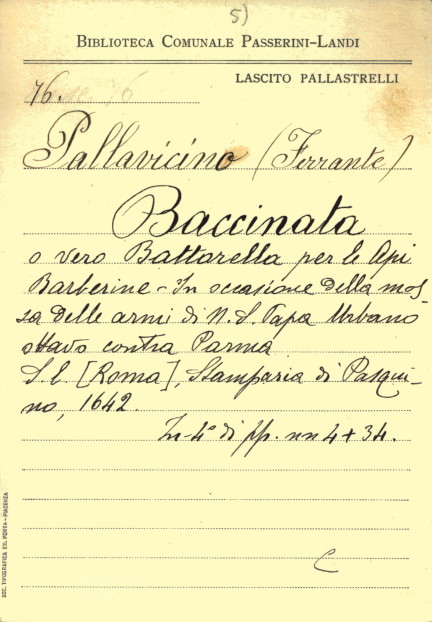 5)
BIBLIOTECA COMUNALE PASSERINI-LANDI
LASCITO PALLASTRELLI
76.
Pallavicino (Ferrante)
Baccinata
o vero Battarella per le Api
Barberine - In occasione della mos-
sa delle armi di N. S. Papa Urbano
ottavo contra Parma
S. l. [Roma], Stamparia di Pasqui-
no, 1642.
In-4° di pp. nn 4 + 34.
C
SOC. TIPOGRAFICA ED. PORTA - PIACENZA